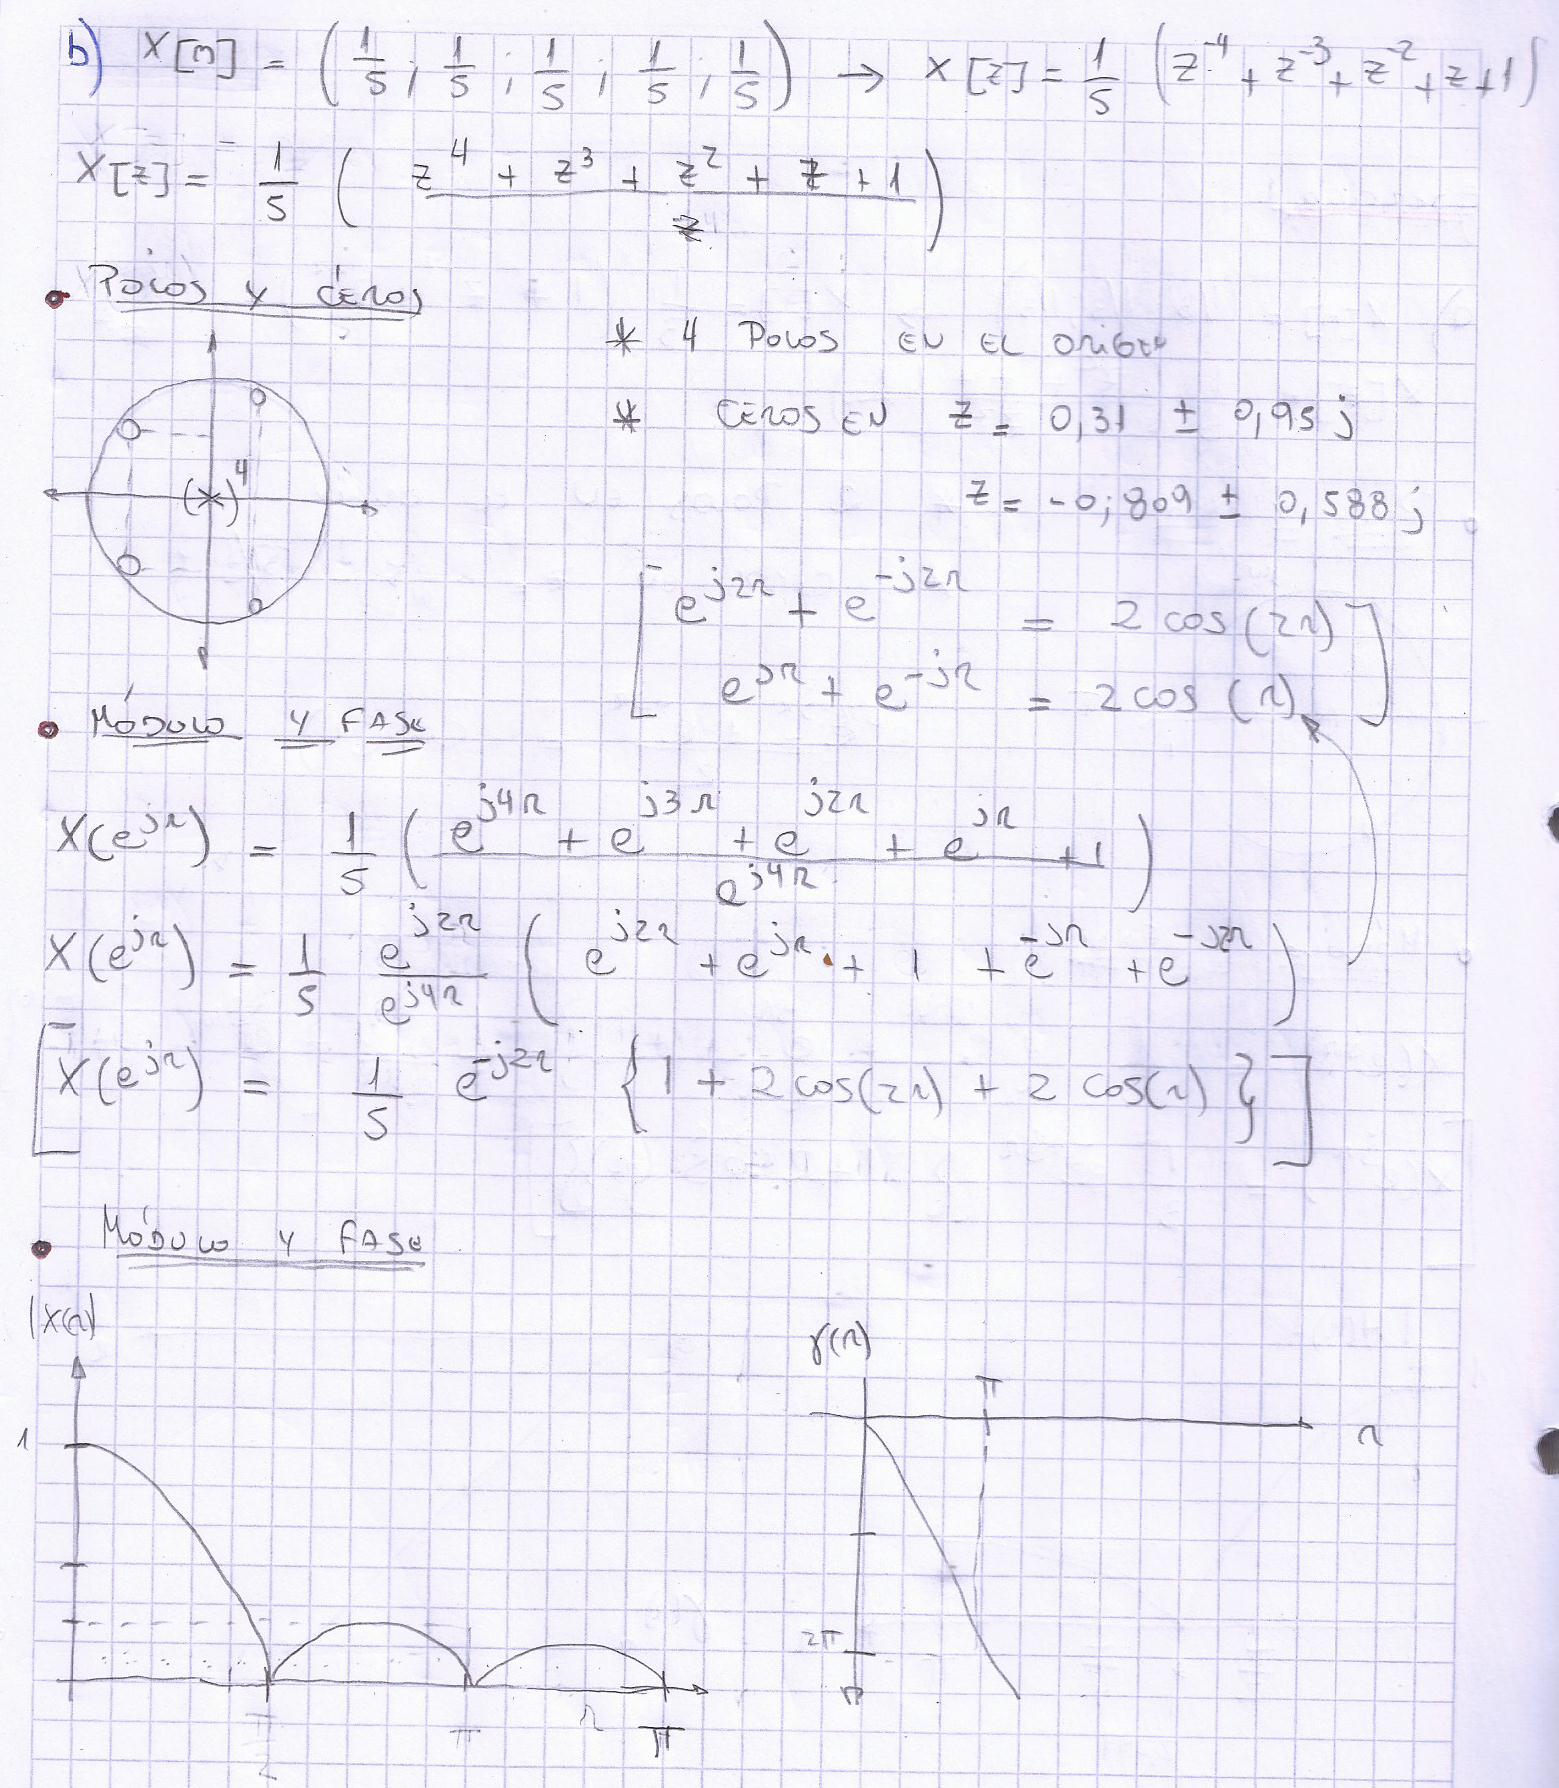 b) X[n] = (1/5 ; 1/5 ; 1/5 ; 1/5 ; 1/5) → X[z] = 1/5 (z^-4 + z^-3 + z^-2 + z + 1)
X[z] = 1/5 ( (z^4 + z^3 + z^2 + z + 1) / z^4 )
• Polos y ceros
* 4 Polos en el origen
* Ceros en z = 0,31 ± 0,95 j
z = -0,809 ± 0,588 j
(×)^4
[ e^j2Ω + e^-j2Ω = 2 cos(2Ω)
e^jΩ + e^-jΩ = 2 cos(Ω) ]
• Módulo y fase
X(e^jΩ) = 1/5 ( (e^j4Ω + e^j3Ω + e^j2Ω + e^jΩ + 1) / e^j4Ω )
X(e^jΩ) = 1/5 e^j2Ω / e^j4Ω ( e^j2Ω + e^jΩ + 1 + e^-jΩ + e^-j2Ω )
[ X(e^jΩ) = 1/5 e^-j2Ω { 1 + 2 cos(2Ω) + 2 cos(Ω) } ]
• Módulo y fase
|X(Ω)|
1
π/2
π
Ω
π
γ(Ω)
π
Ω
2π